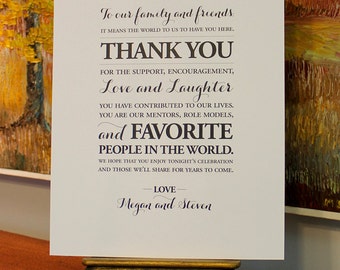 To our family and friends
IT MEANS THE WORLD TO US TO HAVE YOU HERE.
THANK YOU
FOR THE SUPPORT, ENCOURAGEMENT,
Love and Laughter
YOU HAVE CONTRIBUTED TO OUR LIVES.
YOU ARE OUR MENTORS, ROLE MODELS,
and FAVORITE
PEOPLE IN THE WORLD.
WE HOPE THAT YOU ENJOY TONIGHT'S CELEBRATION
AND THOSE WE'LL SHARE FOR YEARS TO COME.
— LOVE —
Megan and Steven